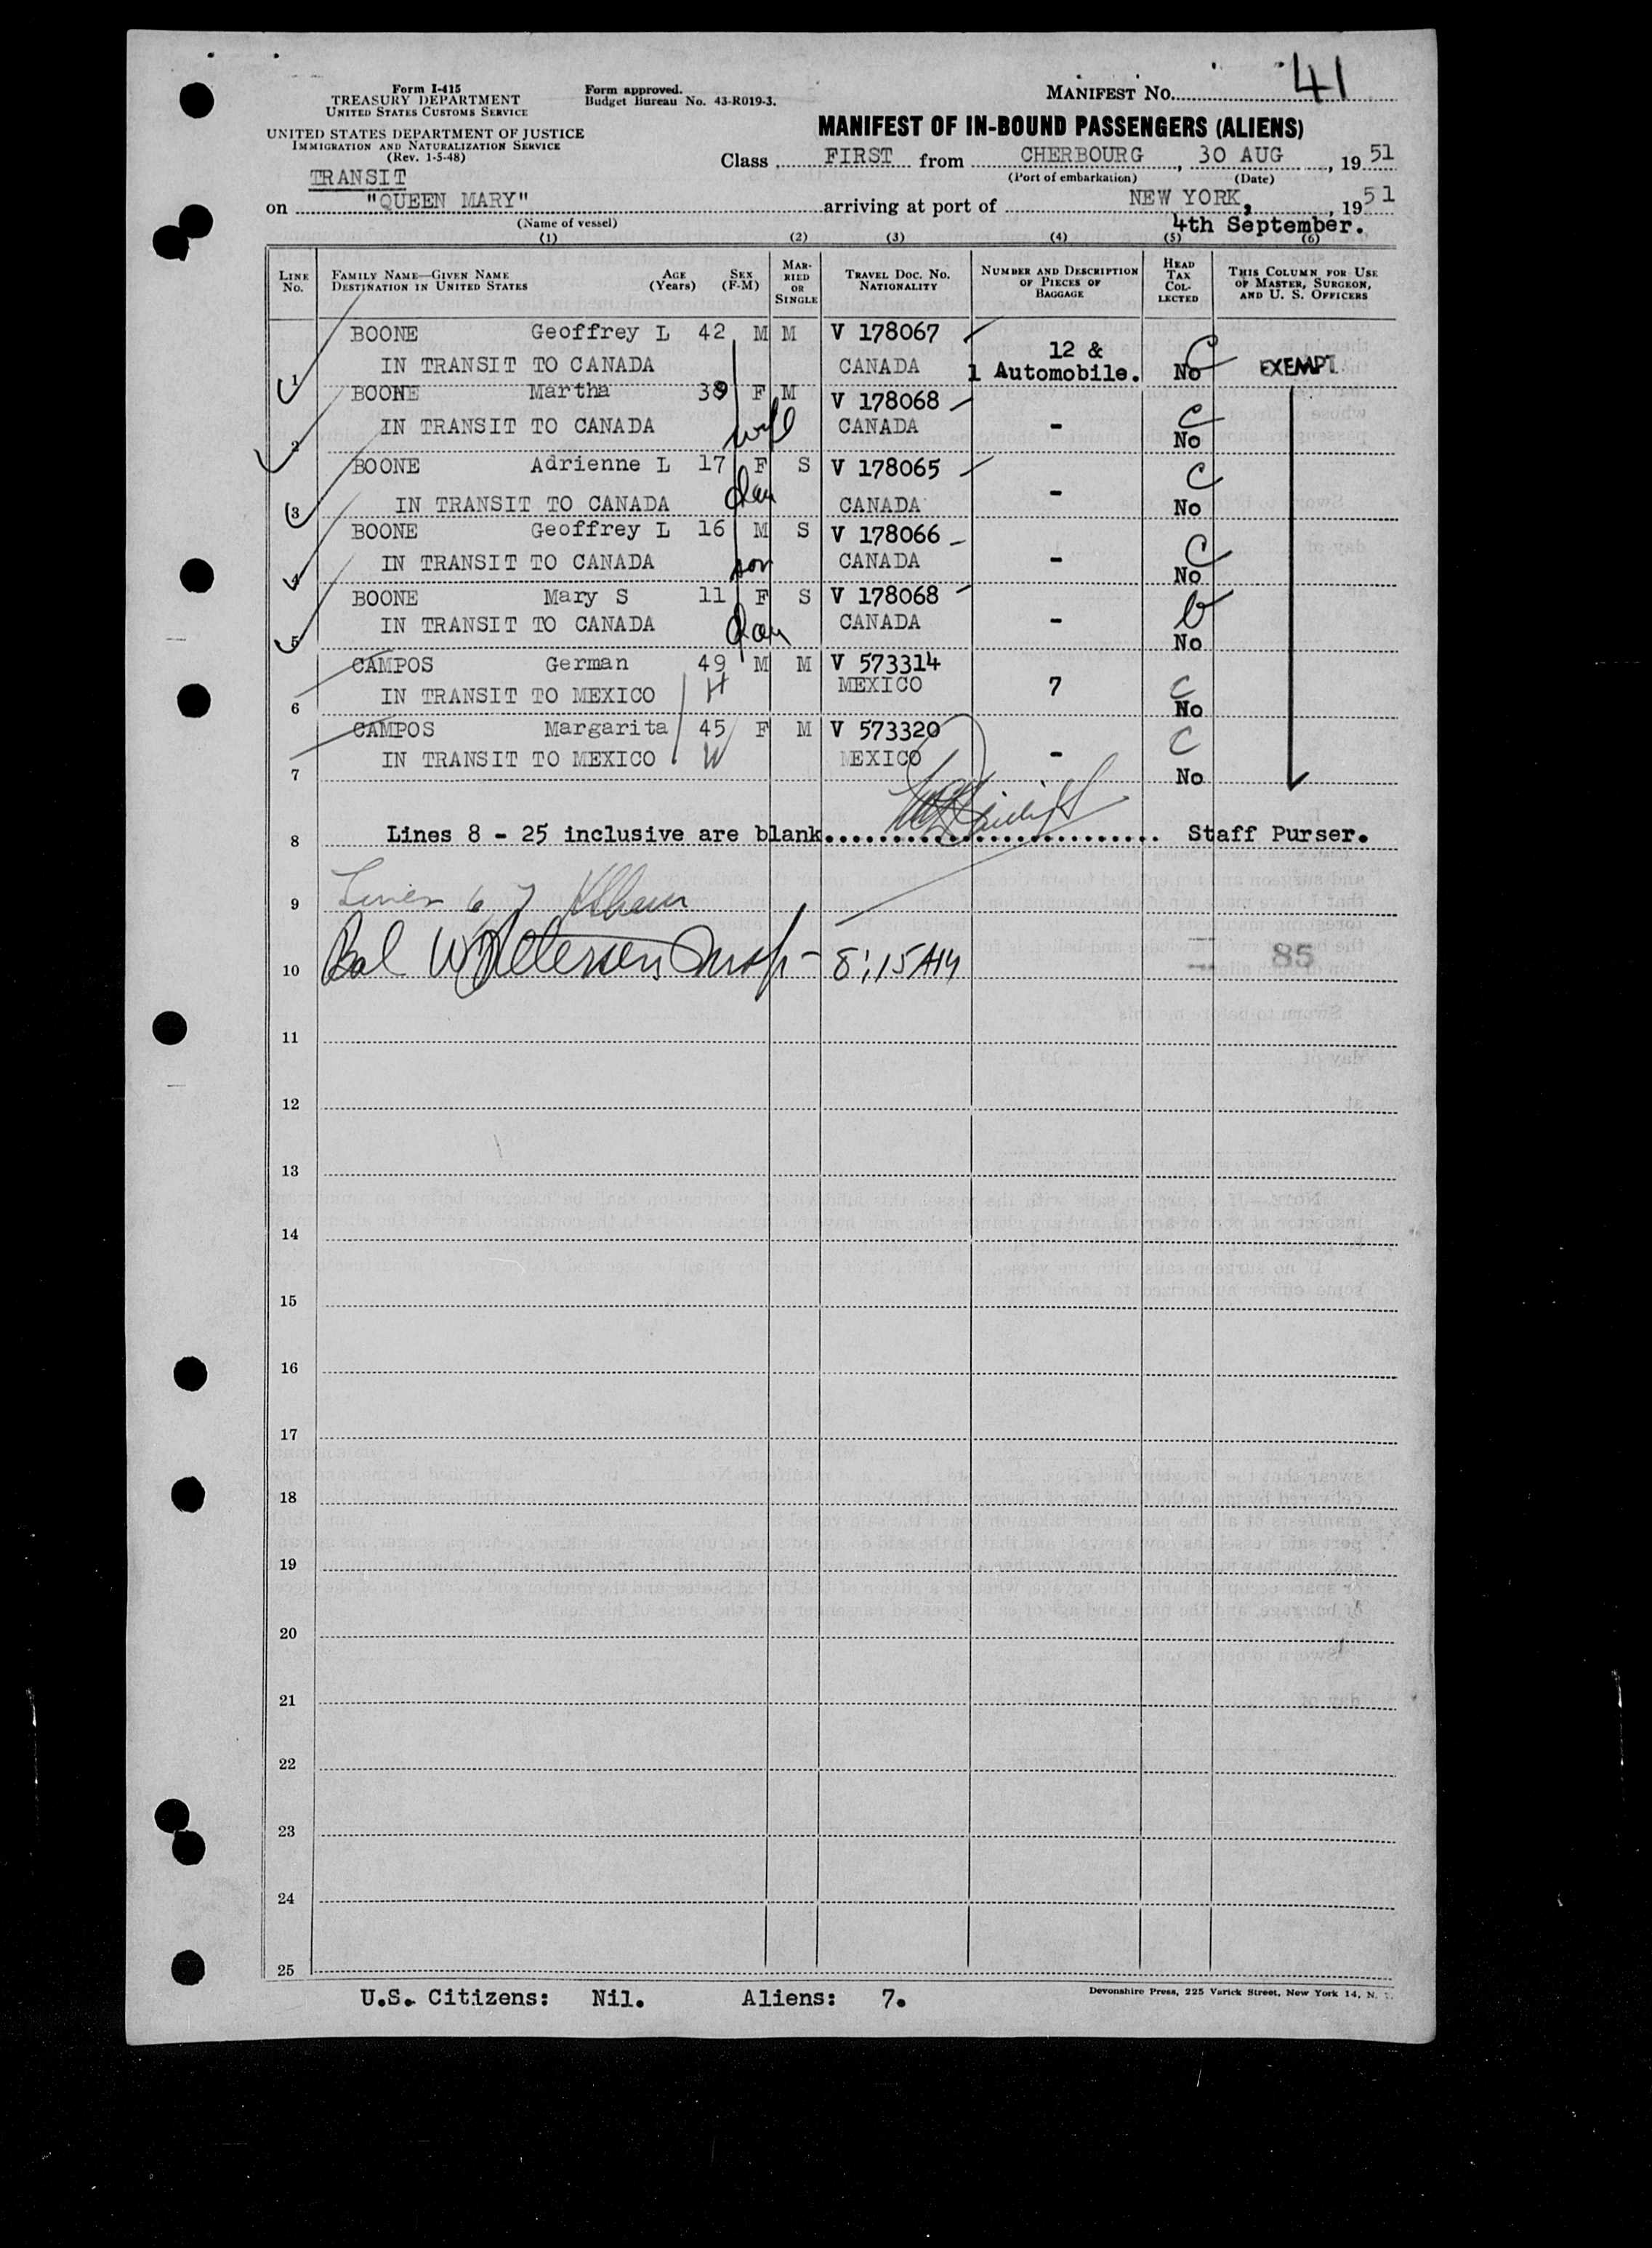 Form I-415
TREASURY DEPARTMENT
UNITED STATES CUSTOMS SERVICE
Form approved.
Budget Bureau No. 43-R019-3.
MANIFEST No. 41
UNITED STATES DEPARTMENT OF JUSTICE
IMMIGRATION AND NATURALIZATION SERVICE
(Rev. 1-5-48)
MANIFEST OF IN-BOUND PASSENGERS (ALIENS)
Class FIRST from CHERBOURG, 30 AUG, 1951
(Port of embarkation) (Date)
TRANSIT
on "QUEEN MARY" arriving at port of NEW YORK, 1951
(Name of vessel) 4th September.
(1) (2) (3) (4) (5) (6)
LINE No. FAMILY NAME—GIVEN NAME DESTINATION IN UNITED STATES AGE (Years) SEX (F-M) MARRIED OR SINGLE TRAVEL DOC. NO. NATIONALITY NUMBER AND DESCRIPTION OF PIECES OF BAGGAGE HEAD TAX COLLECTED THIS COLUMN FOR USE OF MASTER, SURGEON, AND U. S. OFFICERS
BOONE Geoffrey L 42 M M V 178067
1 IN TRANSIT TO CANADA CANADA 12 & 1 Automobile. C No EXEMPT
BOONE Martha 39 F M V 178068
2 IN TRANSIT TO CANADA wife CANADA - C No
BOONE Adrienne L 17 F S V 178065
3 IN TRANSIT TO CANADA dau CANADA - C No
BOONE Geoffrey L 16 M S V 178066
4 IN TRANSIT TO CANADA son CANADA - C No
BOONE Mary S 11 F S V 178068
5 IN TRANSIT TO CANADA dau CANADA - b No
CAMPOS German 49 M M V 573314
6 IN TRANSIT TO MEXICO H MEXICO 7 C No
CAMPOS Margarita 45 F M V 573320
7 IN TRANSIT TO MEXICO W MEXICO - C No
8 Lines 8 - 25 inclusive are blank. Staff Purser.
9 Lines 6 7
10 Bal Insp - 8:15 AM 85
11
12
13
14
15
16
17
18
19
20
21
22
23
24
25
U.S. Citizens: Nil. Aliens: 7.
Devonshire Press, 225 Varick Street, New York 14, N. Y.